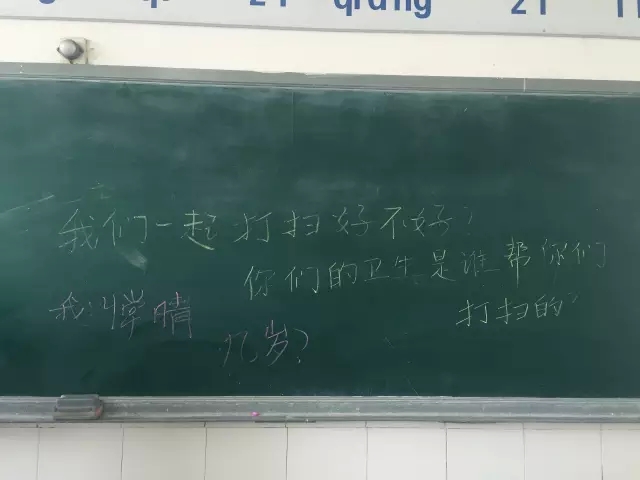 zi qiang zi li
我们一起打扫好不好?
你们的卫生是谁帮你们
打扫的?
我叫常晴
几岁?